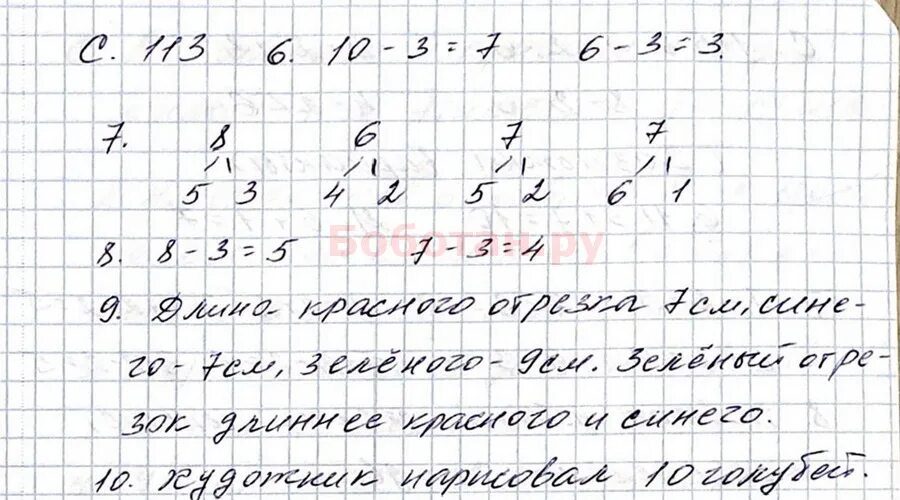 С. 113 6. 10 - 3 = 7 6 - 3 = 3.
7. 8 6 7 7
5 3 4 2 5 2 6 1
Боботан.ру
8. 8 - 3 = 5 7 - 3 = 4
9. Длина красного отрезка 7 см, сине-
го - 7 см, зелёного - 9 см. Зелёный отре-
зок длиннее красного и синего.
10. Художник нарисовал 10 голубей.